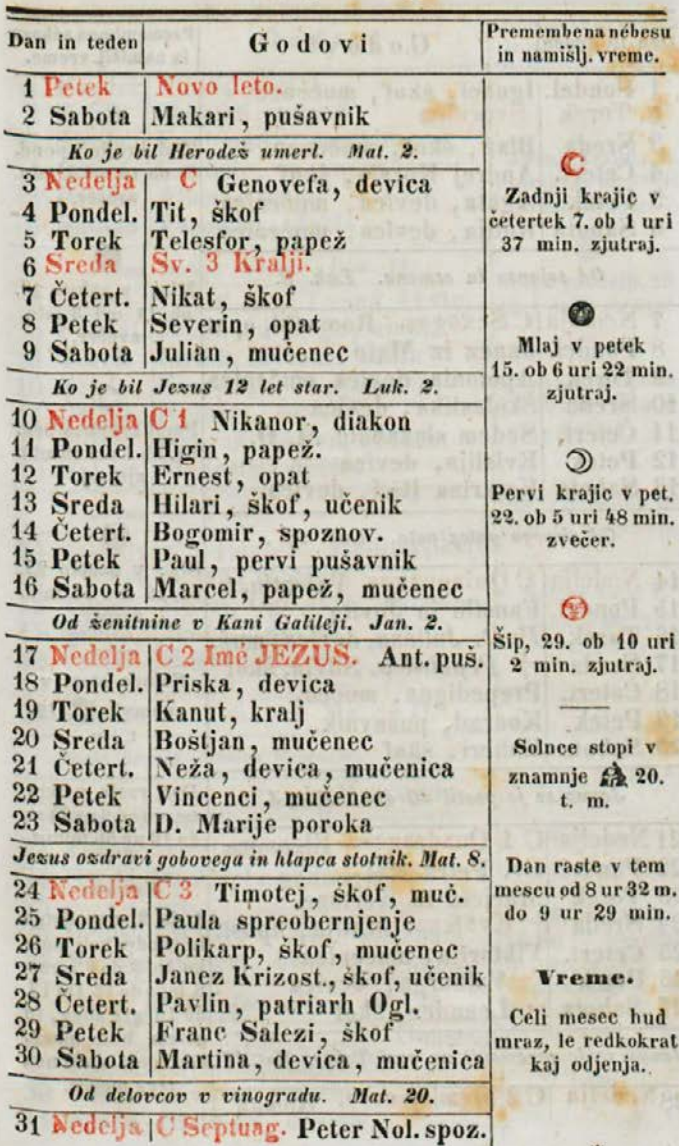 Dan in teden
Godovi
1 Petek Novo leto.
2 Sabota Makari, pušavnik
Ko je bil Herodež umerl. Mat. 2.
3 Nedelja C Genovefa, devica
4 Pondel. Tit, škof
5 Torek Telesfor, papež
6 Sreda Sv. 3 Kralji.
7 Četert. Nikat, škof
8 Petek Severin, opat
9 Sabota Julian, mučenec
Ko je bil Jezus 12 let star. Luk. 2.
10 Nedelja C 1 Nikanor, diakon
11 Pondel. Higin, papež.
12 Torek Ernest, opat
13 Sreda Hilari, škof, učenik
14 Četert. Bogomir, spoznov.
15 Petek Paul, pervi pušavnik
16 Sabota Marcel, papež, mučenec
Od ženitnine v Kani Galileji. Jan. 2.
17 Nedelja C 2 Imé JEZUS. Ant. puš.
18 Pondel. Priska, devica
19 Torek Kanut, kralj
20 Sreda Boštjan, mučenec
21 Četert. Neža, devica, mučenica
22 Petek Vincenci, mučenec
23 Sabota D. Marije poroka
Jezus ozdravi gobovega in hlapca stotnik. Mat. 8.
24 Nedelja C 3 Timotej, škof, muč.
25 Pondel. Paula spreobernjenje
26 Torek Polikarp, škof, mučenec
27 Sreda Janez Krizost., škof, učenik
28 Četert. Pavlin, patriarh Ogl.
29 Petek Franc Salezi, škof
30 Sabota Martina, devica, mučenica
Od delovcov v vinogradu. Mat. 20.
31 Nedelja C Septuag. Peter Nol. spoz.
Premembena nébesu
in namišlj. vreme.
Zadnji krajic v
četertek 7. ob 1 uri
37 min. zjutraj.
Mlaj v petek
15. ob 6 uri 22 min.
zjutraj.
Pervi krajic v pet.
22. ob 5 uri 48 min.
zvečer.
Šip, 29. ob 10 uri
2 min. zjutraj.
Solnce stopi v
znamnje 20.
t. m.
Dan raste v tem
mescu od 8 ur 32 m.
do 9 ur 29 min.
Vreme.
Celi mesec hud
mraz, le redkokrat
kaj odjenja.